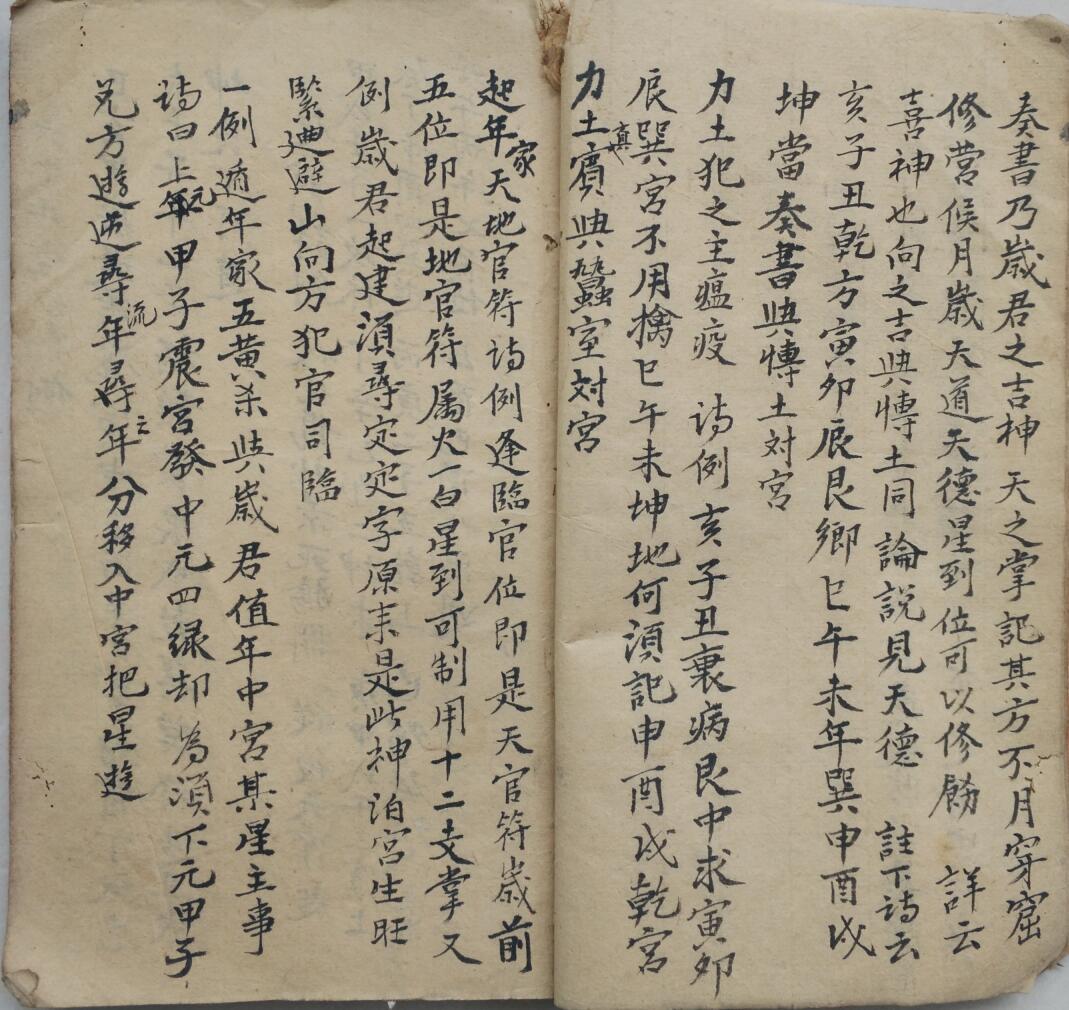 奏書乃嵗君之吉神 天之掌記其方不月穿窟
修营候月嵗天道天德星到位可以修餝 詳云
喜神也向之吉與愽土同論說見天德 註下诗云
亥子丑乾方寅夘辰艮鄉巳午未年巽申酉戌
坤當奏書與愽土対宮
力土犯之主瘟疫 诗例 亥子丑裏病艮中求寅夘
辰巽宮不用擒巳午未坤地何湏記申酉戌乾宮真
力土賔與蠶室対宮
起年家天地官符诗例逢臨官位即是天官符嵗前
五位即是地官符属火一白星到可制用十二支掌又
例 嵗君起建湏尋定定字原来是此神泊宮生旺
緊廻避山向方犯官司臨
一例遁年家五黄杀與嵗君值年中宮某星主事
诗曰上元年甲子震宮發中元四緑却為湏下元甲子
兑方遊逆尋年流尋年之分移入中宮把星遊